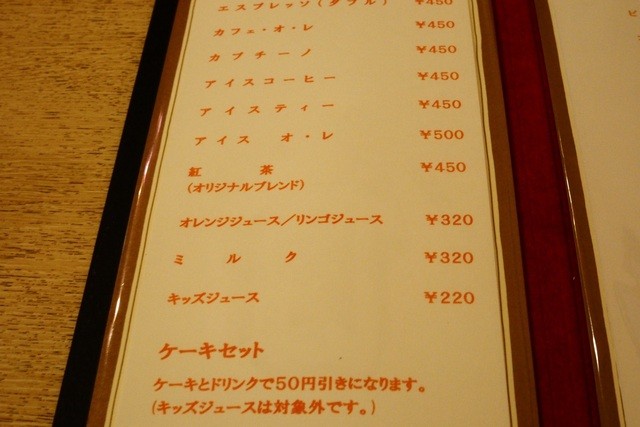 エスプレッソ(ダブル) ¥450
カフェ・オ・レ ¥450
カプチーノ ¥450
アイスコーヒー ¥450
アイスティー ¥450
アイス オ・レ ¥500
紅 茶 ¥450
(オリジナルブレンド)
オレンジジュース/リンゴジュース ¥320
ミルク ¥320
キッズジュース ¥220
ケーキセット
ケーキとドリンクで50円引きになります。
(キッズジュースは対象外です。)